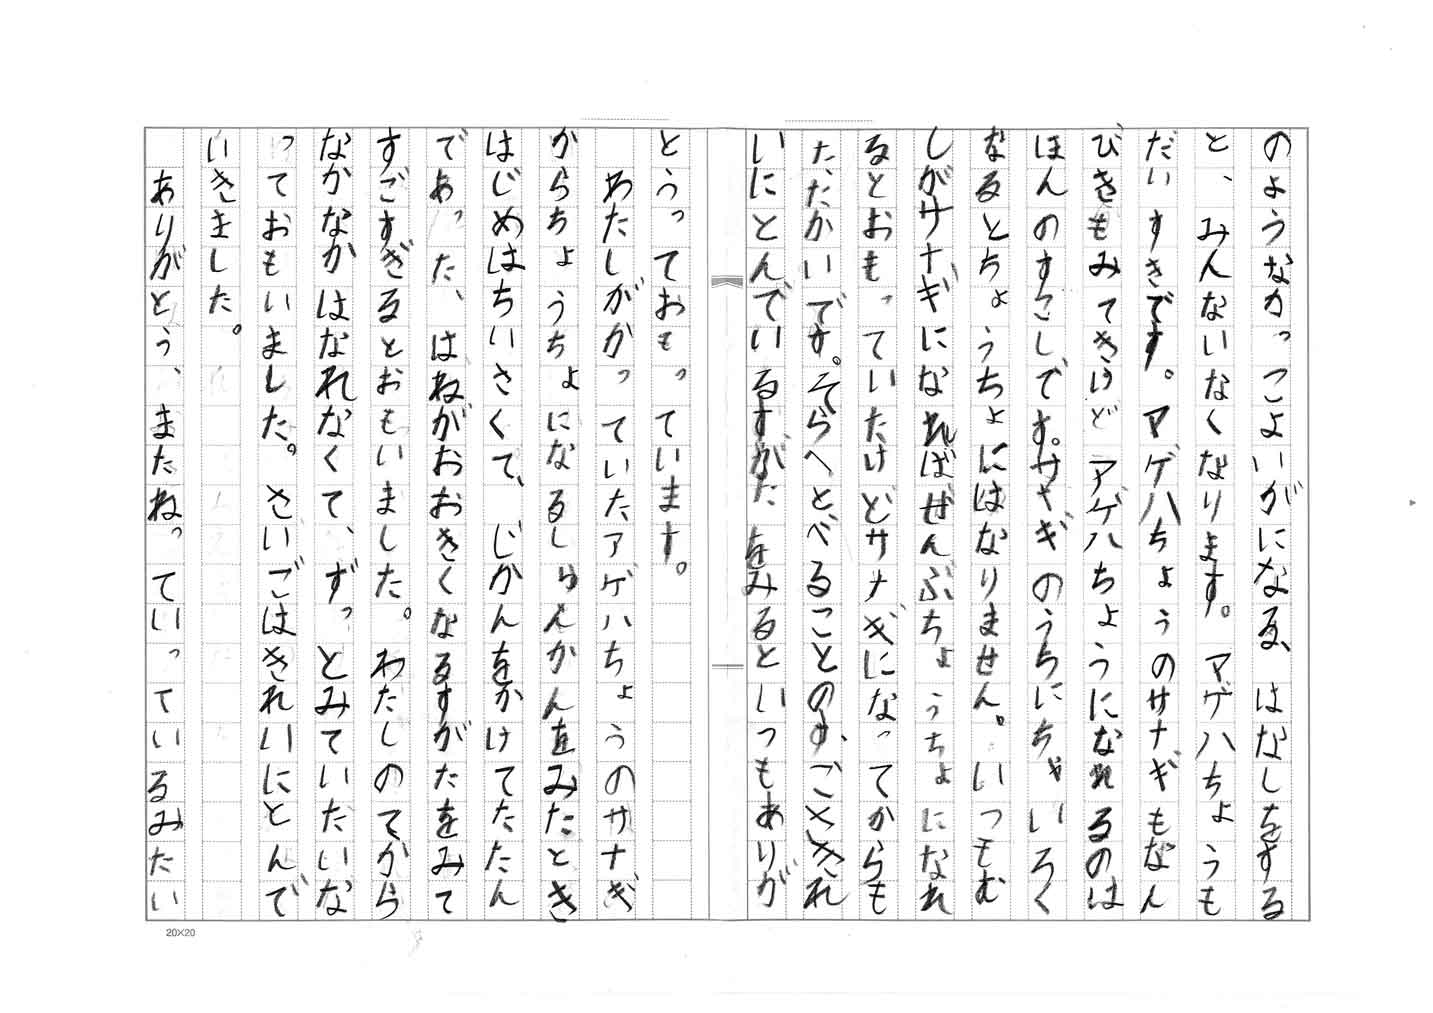 のようなかっこよいがになる、はなしをする
と、みんないなくなります。アゲハちょうも
だいすきです。アゲハちょうのサナギもなん
びきもみてきけどアゲハちょうになれるのは
ほんのすこしです。サナギのうちにちゃいろく
なるとちょうちょにはなりません。いつもむ
しがサナギになればぜんぶちょうちょになれ
るとおもっていたけどサナギになってからも
たたかいです。そらへとべることのす、ごさきれ
いにとんでいるすがたをみるといつもありが
とうっておもっています。
わたしがかっていたアゲハちょうのサナギ
からちょうちょになるしゅんかんをみたとき
はじめはちいさくて、じかんをかけてたたん
であった、はねがおおきくなるすがたをみて
すごすぎるとおもいました。わたしのてから
なかなかはなれなくて、ずっとみていたいな
っておもいました。さいごはきれいにとんで
いきました。
ありがとう、またねっていっているみたい
20×20